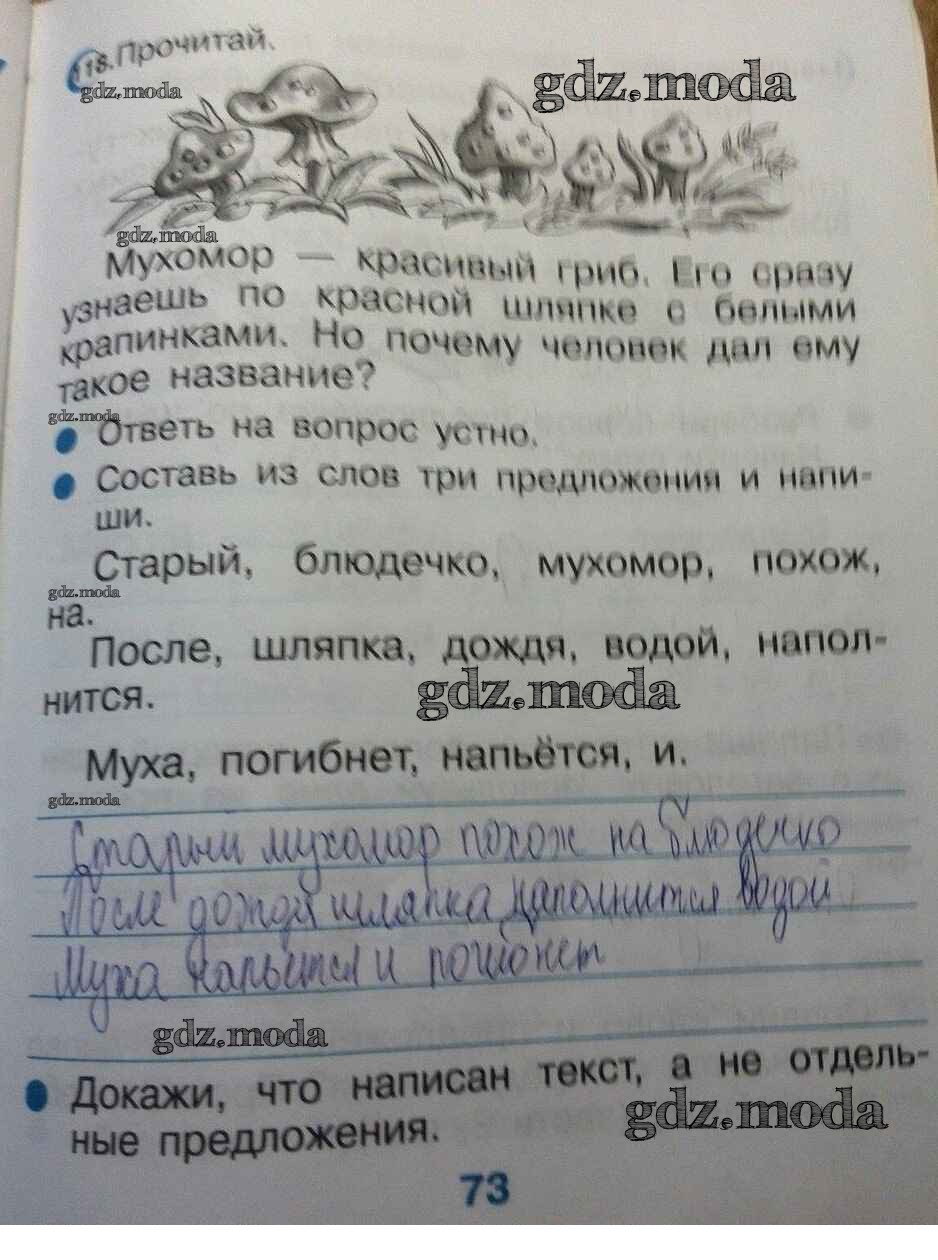 118. Прочитай.
gdz.moda
gdz.moda
gdz.moda
Мухомор — красивый гриб. Его сразу
узнаешь по красной шляпке с белыми
крапинками. Но почему человек дал ему
такое название?
gdz.moda
Ответь на вопрос устно.
Составь из слов три предложения и напи-
ши.
Старый, блюдечко, мухомор, похож,
gdz.moda
на.
После, шляпка, дождя, водой, напол-
нится.
gdz.moda
Муха, погибнет, напьётся, и.
gdz.moda
Старый мухомор похож на блюдечко
После дождя шляпка наполнится водой
Муха напьется и погибнет
gdz.moda
Докажи, что написан текст, а не отдель-
ные предложения.
gdz.moda
73